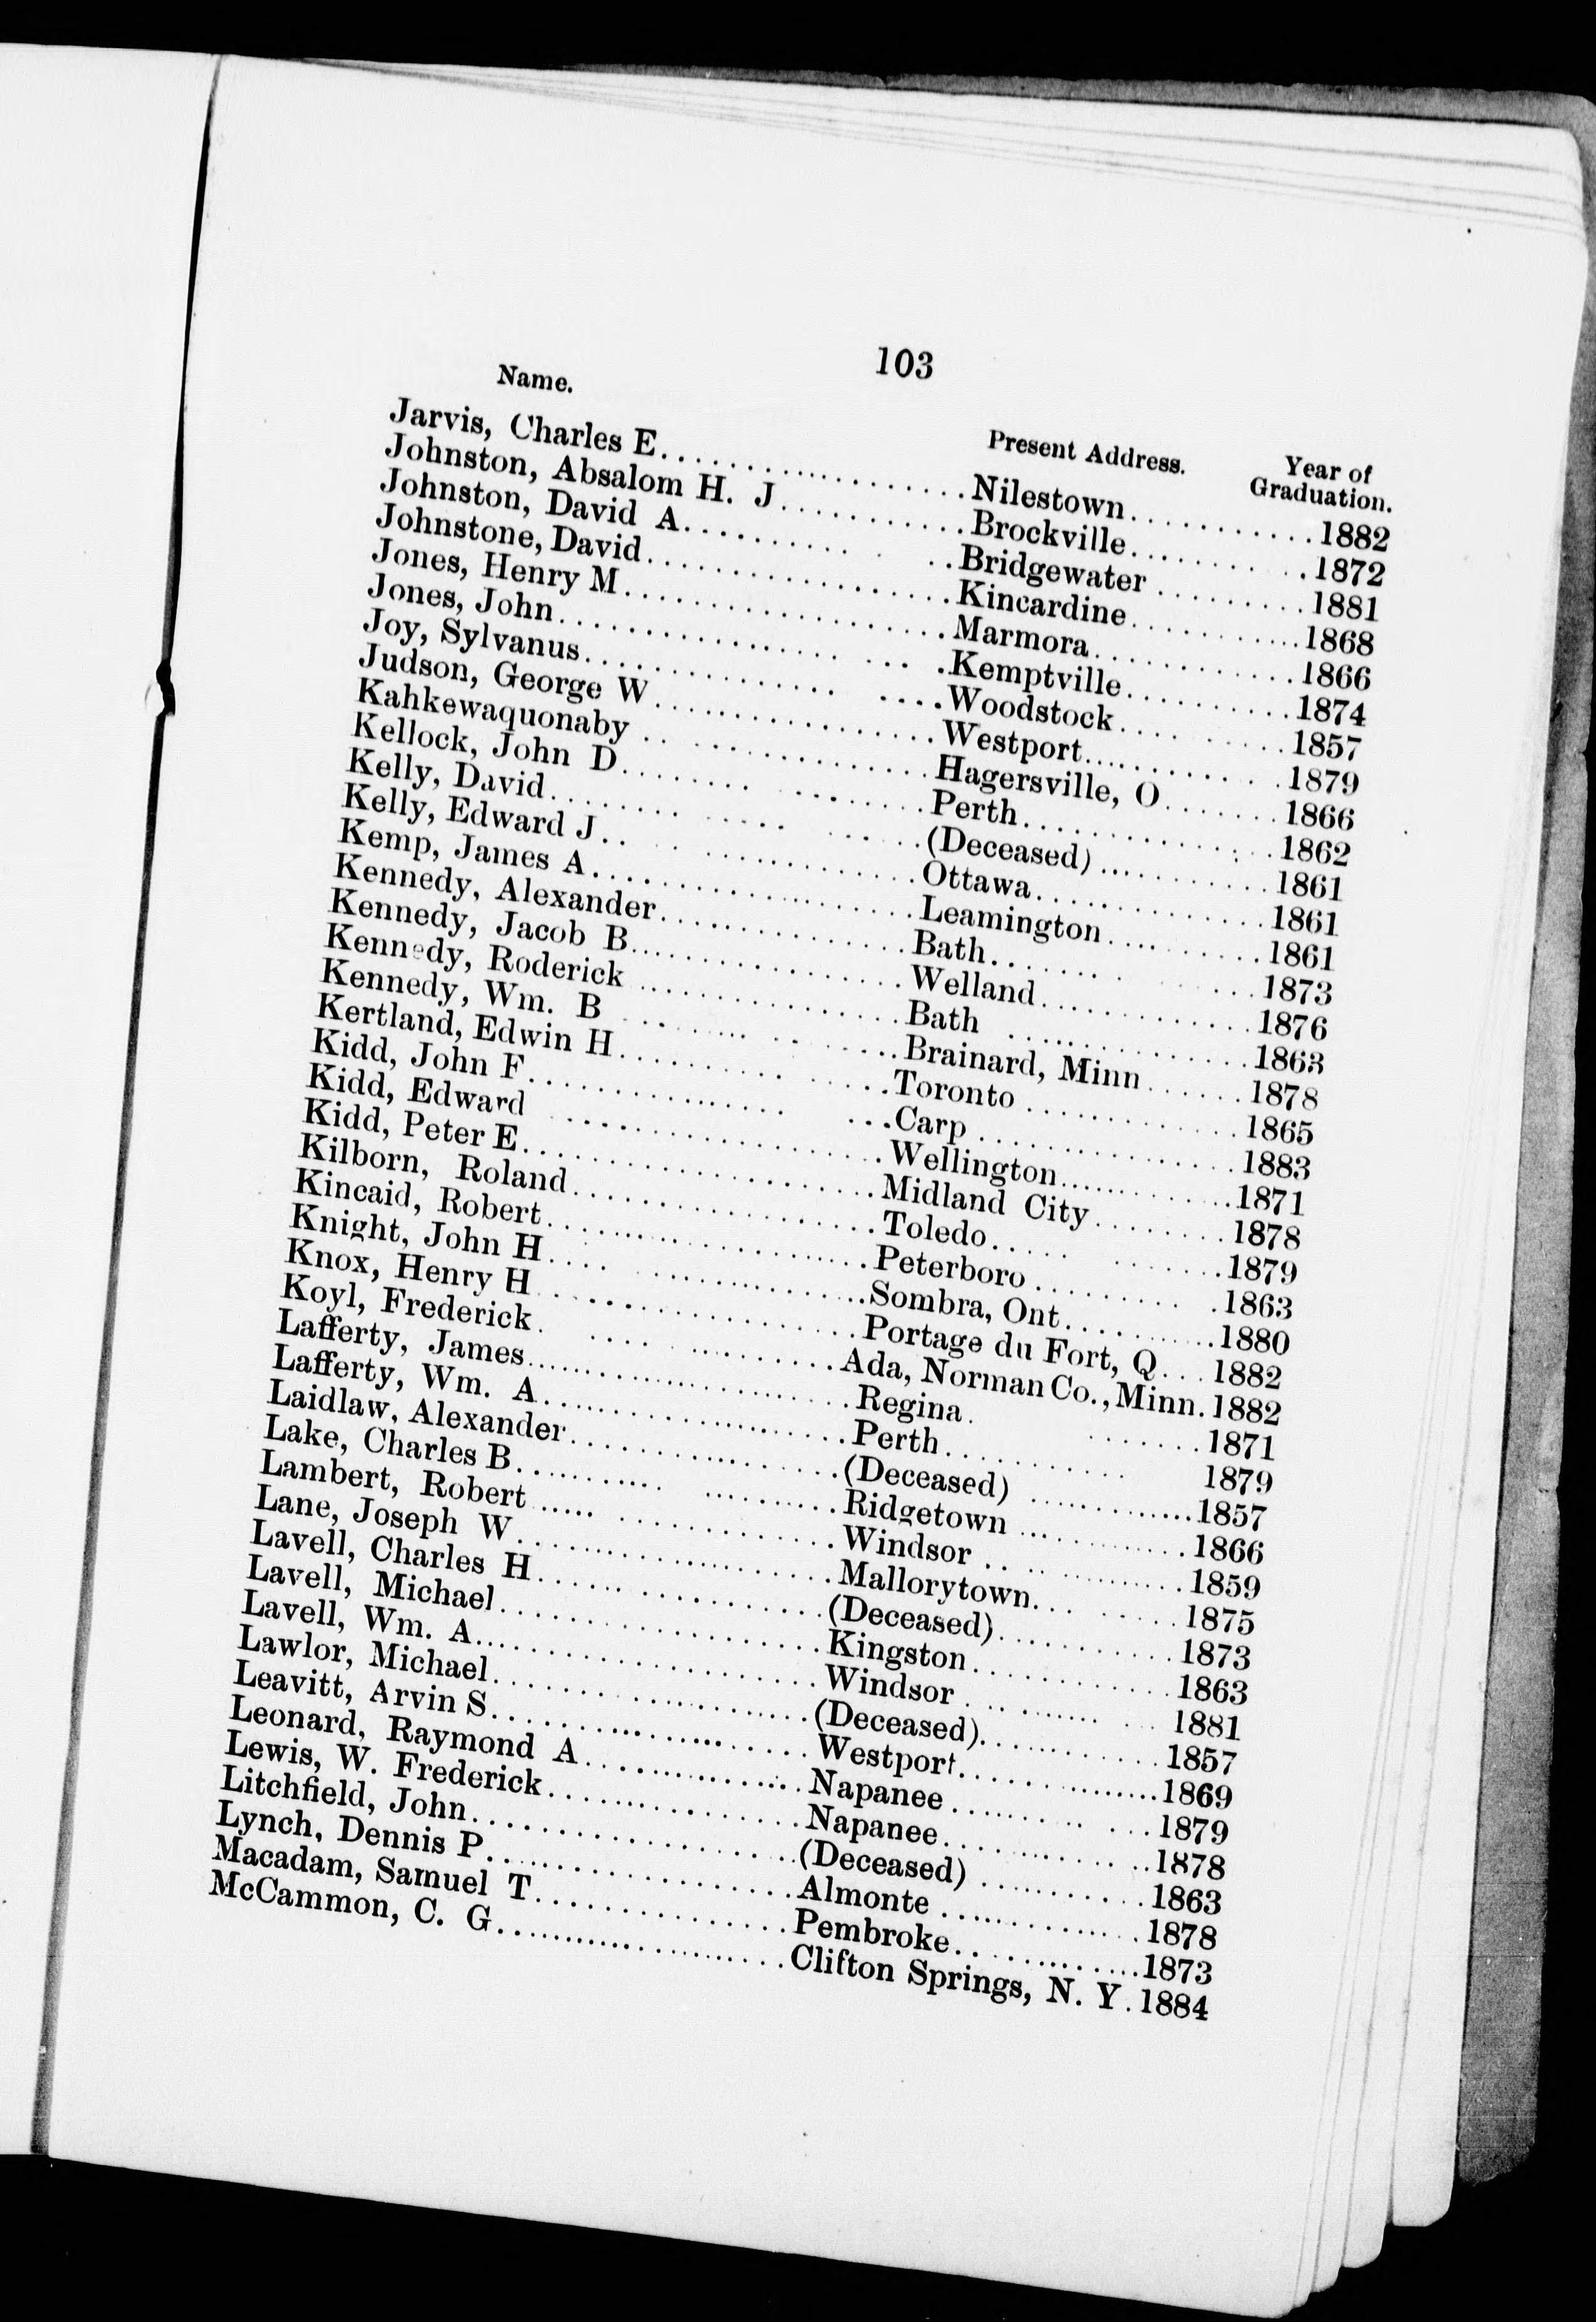 103
Name. Present Address. Year of
Graduation.
Jarvis, Charles E.....Nilestown.....1882
Johnston, Absalom H. J.....Brockville.....1872
Johnston, David A.....Bridgewater.....1881
Johnstone, David.....Kincardine.....1868
Jones, Henry M.....Marmora.....1866
Jones, John.....Kemptville.....1874
Joy, Sylvanus.....Woodstock.....1857
Judson, George W.....Westport.....1879
Kahkewaquonaby.....Hagersville, O.....1866
Kellock, John D.....Perth.....1862
Kelly, David.....(Deceased).....1861
Kelly, Edward J.....Ottawa.....1861
Kemp, James A.....Leamington.....1861
Kennedy, Alexander.....Bath.....1873
Kennedy, Jacob B.....Welland.....1876
Kennedy, Roderick.....Bath.....1863
Kennedy, Wm. B.....Brainard, Minn.....1878
Kertland, Edwin H.....Toronto.....1865
Kidd, John F.....Carp.....1883
Kidd, Edward.....Wellington.....1871
Kidd, Peter E.....Midland City.....1878
Kilborn, Roland.....Toledo.....1879
Kincaid, Robert.....Peterboro.....1863
Knight, John H.....Sombra, Ont.....1880
Knox, Henry H.....Portage du Fort, Q...1882
Koyl, Frederick.....Ada, Norman Co., Minn.1882
Lafferty, James.....Regina.....1871
Lafferty, Wm. A.....Perth.....1879
Laidlaw, Alexander.....(Deceased).....1857
Lake, Charles B.....Ridgetown.....1866
Lambert, Robert.....Windsor.....1859
Lane, Joseph W.....Mallorytown.....1875
Lavell, Charles H.....(Deceased).....1873
Lavell, Michael.....Kingston.....1863
Lavell, Wm. A.....Windsor.....1881
Lawlor, Michael.....(Deceased).....1857
Leavitt, Arvin S.....Westport.....1869
Leonard, Raymond A.....Napanee.....1879
Lewis, W. Frederick.....Napanee.....1878
Litchfield, John.....(Deceased).....1863
Lynch, Dennis P.....Almonte.....1878
Macadam, Samuel T.....Pembroke.....1873
McCammon, C. G.....Clifton Springs, N. Y.1884